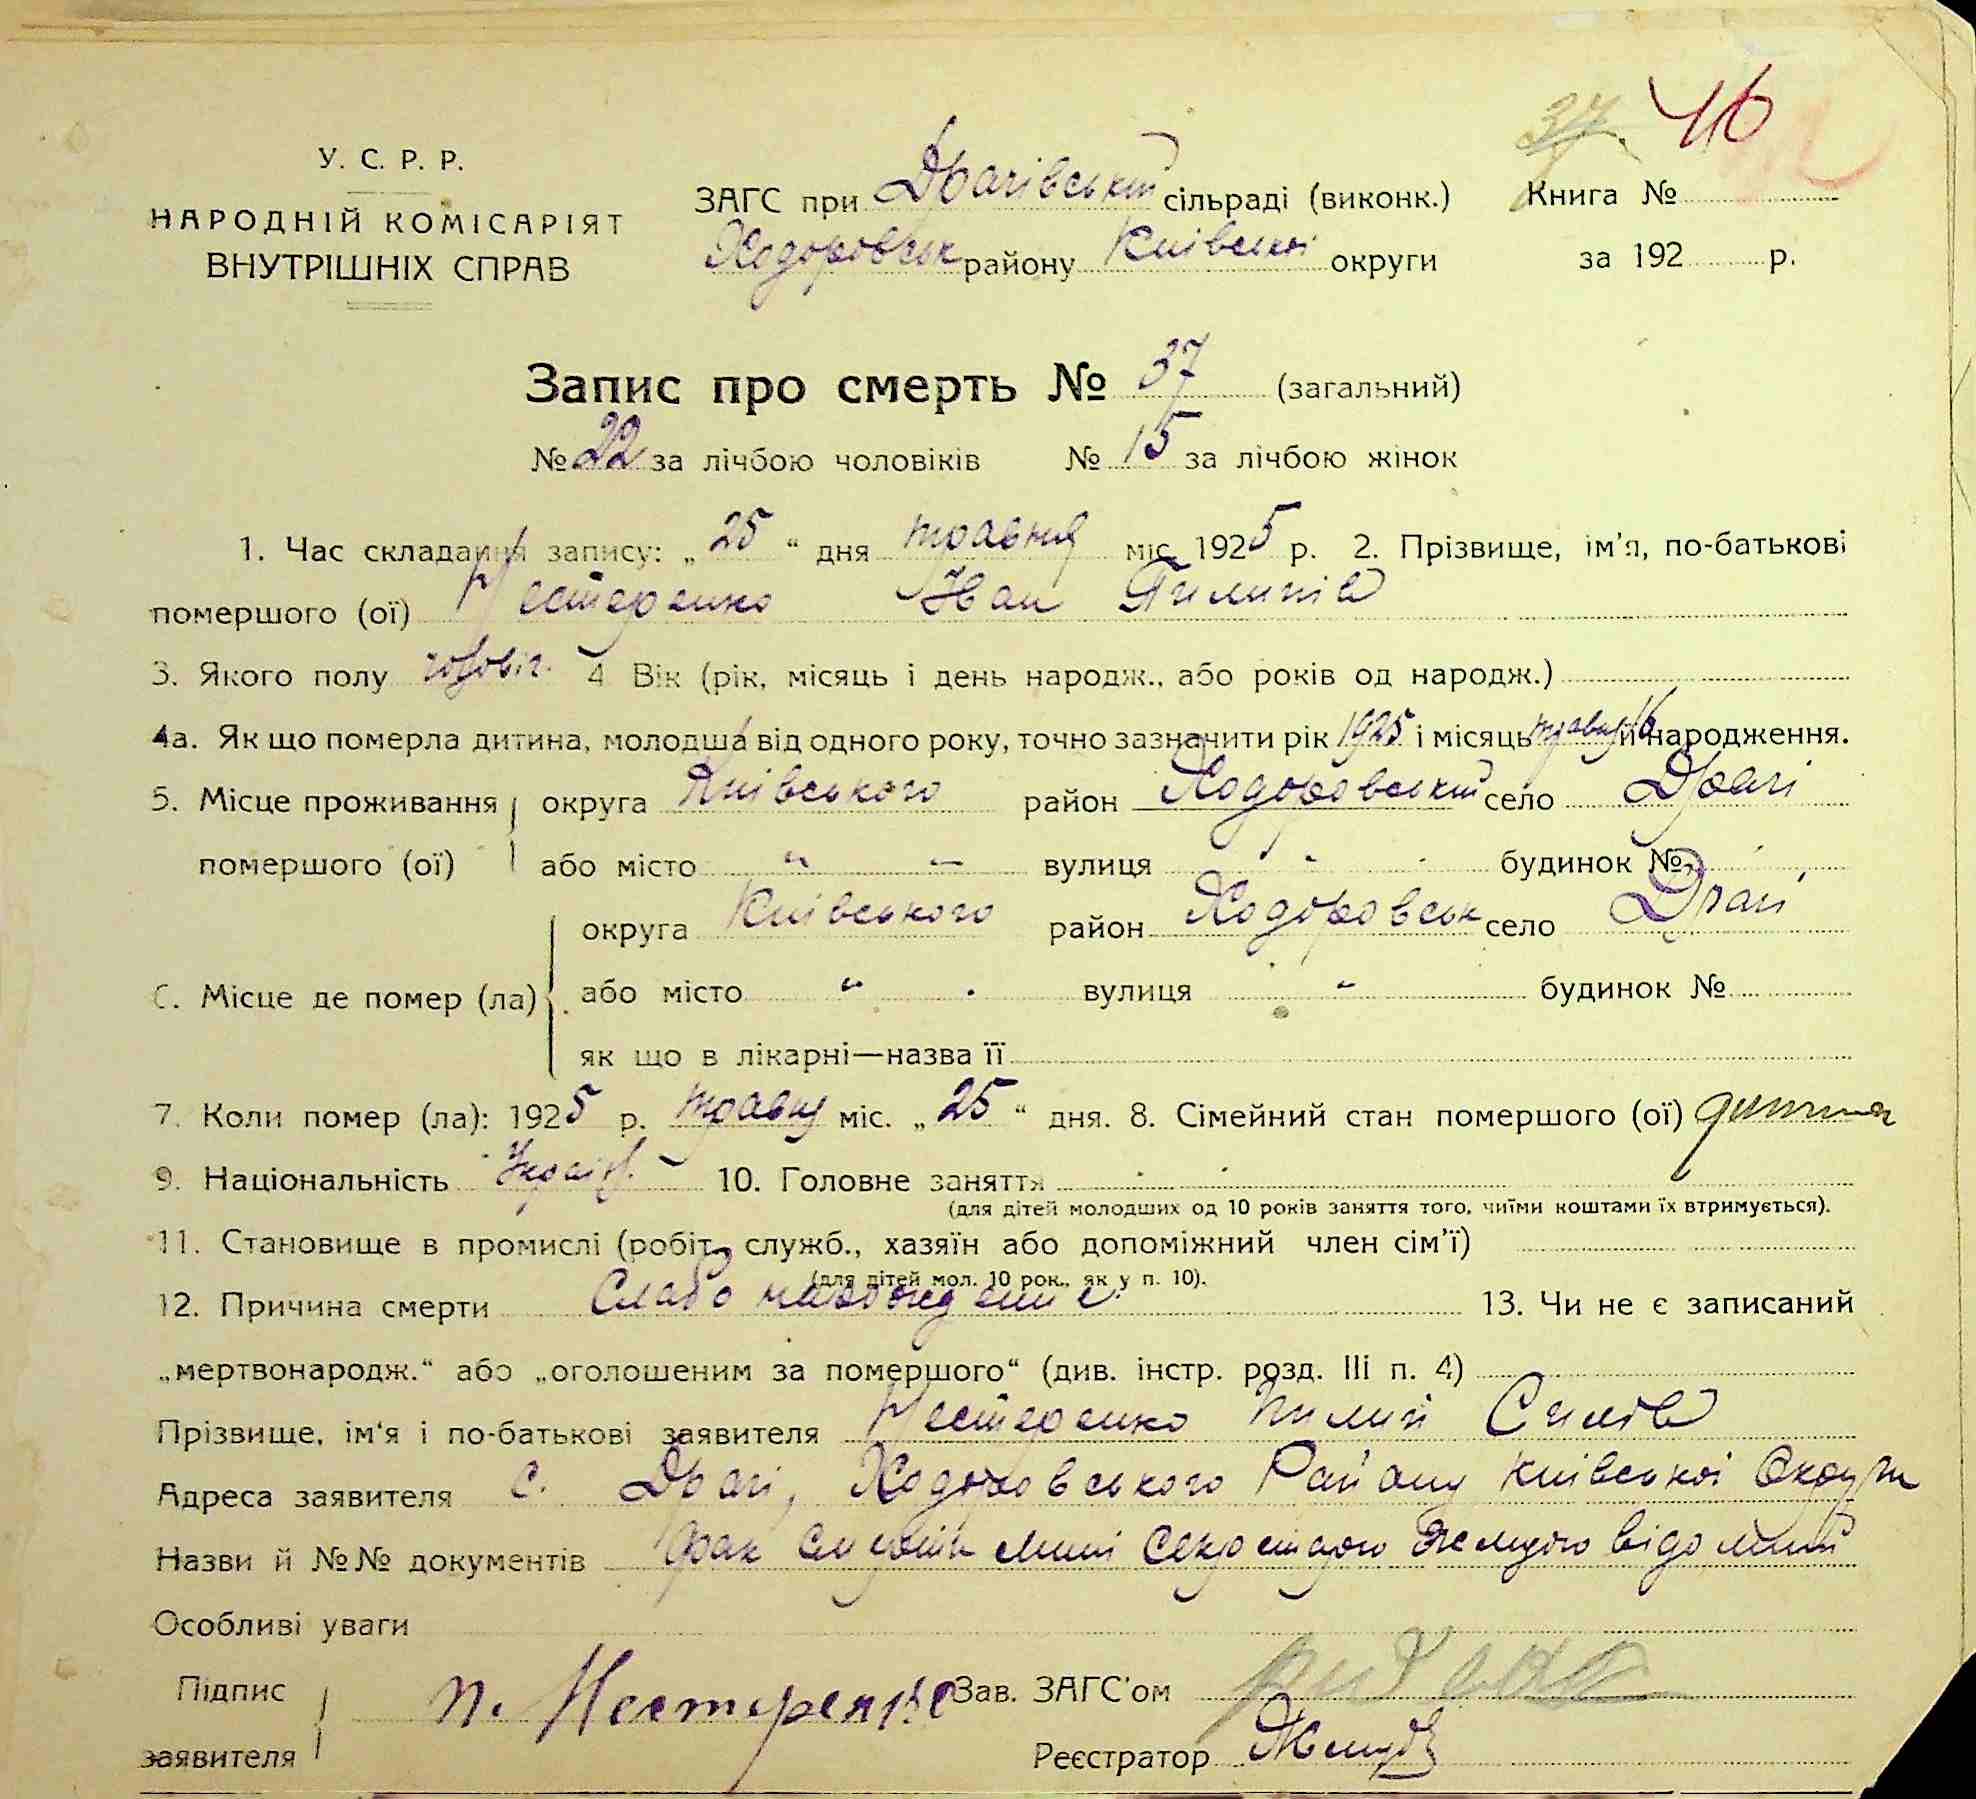 37. 46
У. С. Р. Р.
НАРОДНІЙ КОМІСАРІЯТ
ВНУТРІШНІХ СПРАВ
ЗАГС при Драчівській сільраді (виконк.) Книга №
Ходоровськ району Київської округи за 192 р.
Запис про смерть № 37 (загальний)
№ 22 за лічбою чоловіків № 15 за лічбою жінок
1. Час складання запису: „ 25 “ дня травня міс. 1925 р. 2. Прізвище, ім'я, по-батькові
помершого (ої) Нестеренко Іван Пилипів
3. Якого полу чоловіч. 4 Вік (рік, місяць і день народж., або років од народж.)
4а. Як що померла дитина, молодша від одного року, точно зазначити рік 1925 і місяць травня 16 її народження.
5. Місце проживання округа Київського район Ходоровський село Драчі
помершого (ої) або місто " — вулиця " будинок №
округа Київського район Ходоровськ село Драчі
6. Місце де помер (ла) або місто " вулиця " будинок №
як що в лікарні—назва її
7. Коли помер (ла): 1925 р. травня міс. „ 25 “ дня. 8. Сімейний стан помершого (ої) дитина
9. Національність Україн. 10. Головне заняття
(для дітей молодших од 10 років заняття того, чиїми коштами їх втримується).
11. Становище в промислі (робіт., служб., хазяїн або допоміжний член сім'ї)
(для дітей мол. 10 рок., як у п. 10).
12. Причина смерти Слабо 13. Чи не є записаний
„мертвонародж.“ або „оголошеним за помершого“ (див. інстр. розд. III п. 4)
Прізвище, ім'я і по-батькові заявителя Нестеренко Пилип Силів
Адреса заявителя с. Драчі, Ходоровського Району Київської Округи
Назви й №№ документів факт смерти мині Секретарю відомий
Особливі уваги
Підпис заявителя П. Нестеренко Зав. ЗАГС'ом
Реєстратор